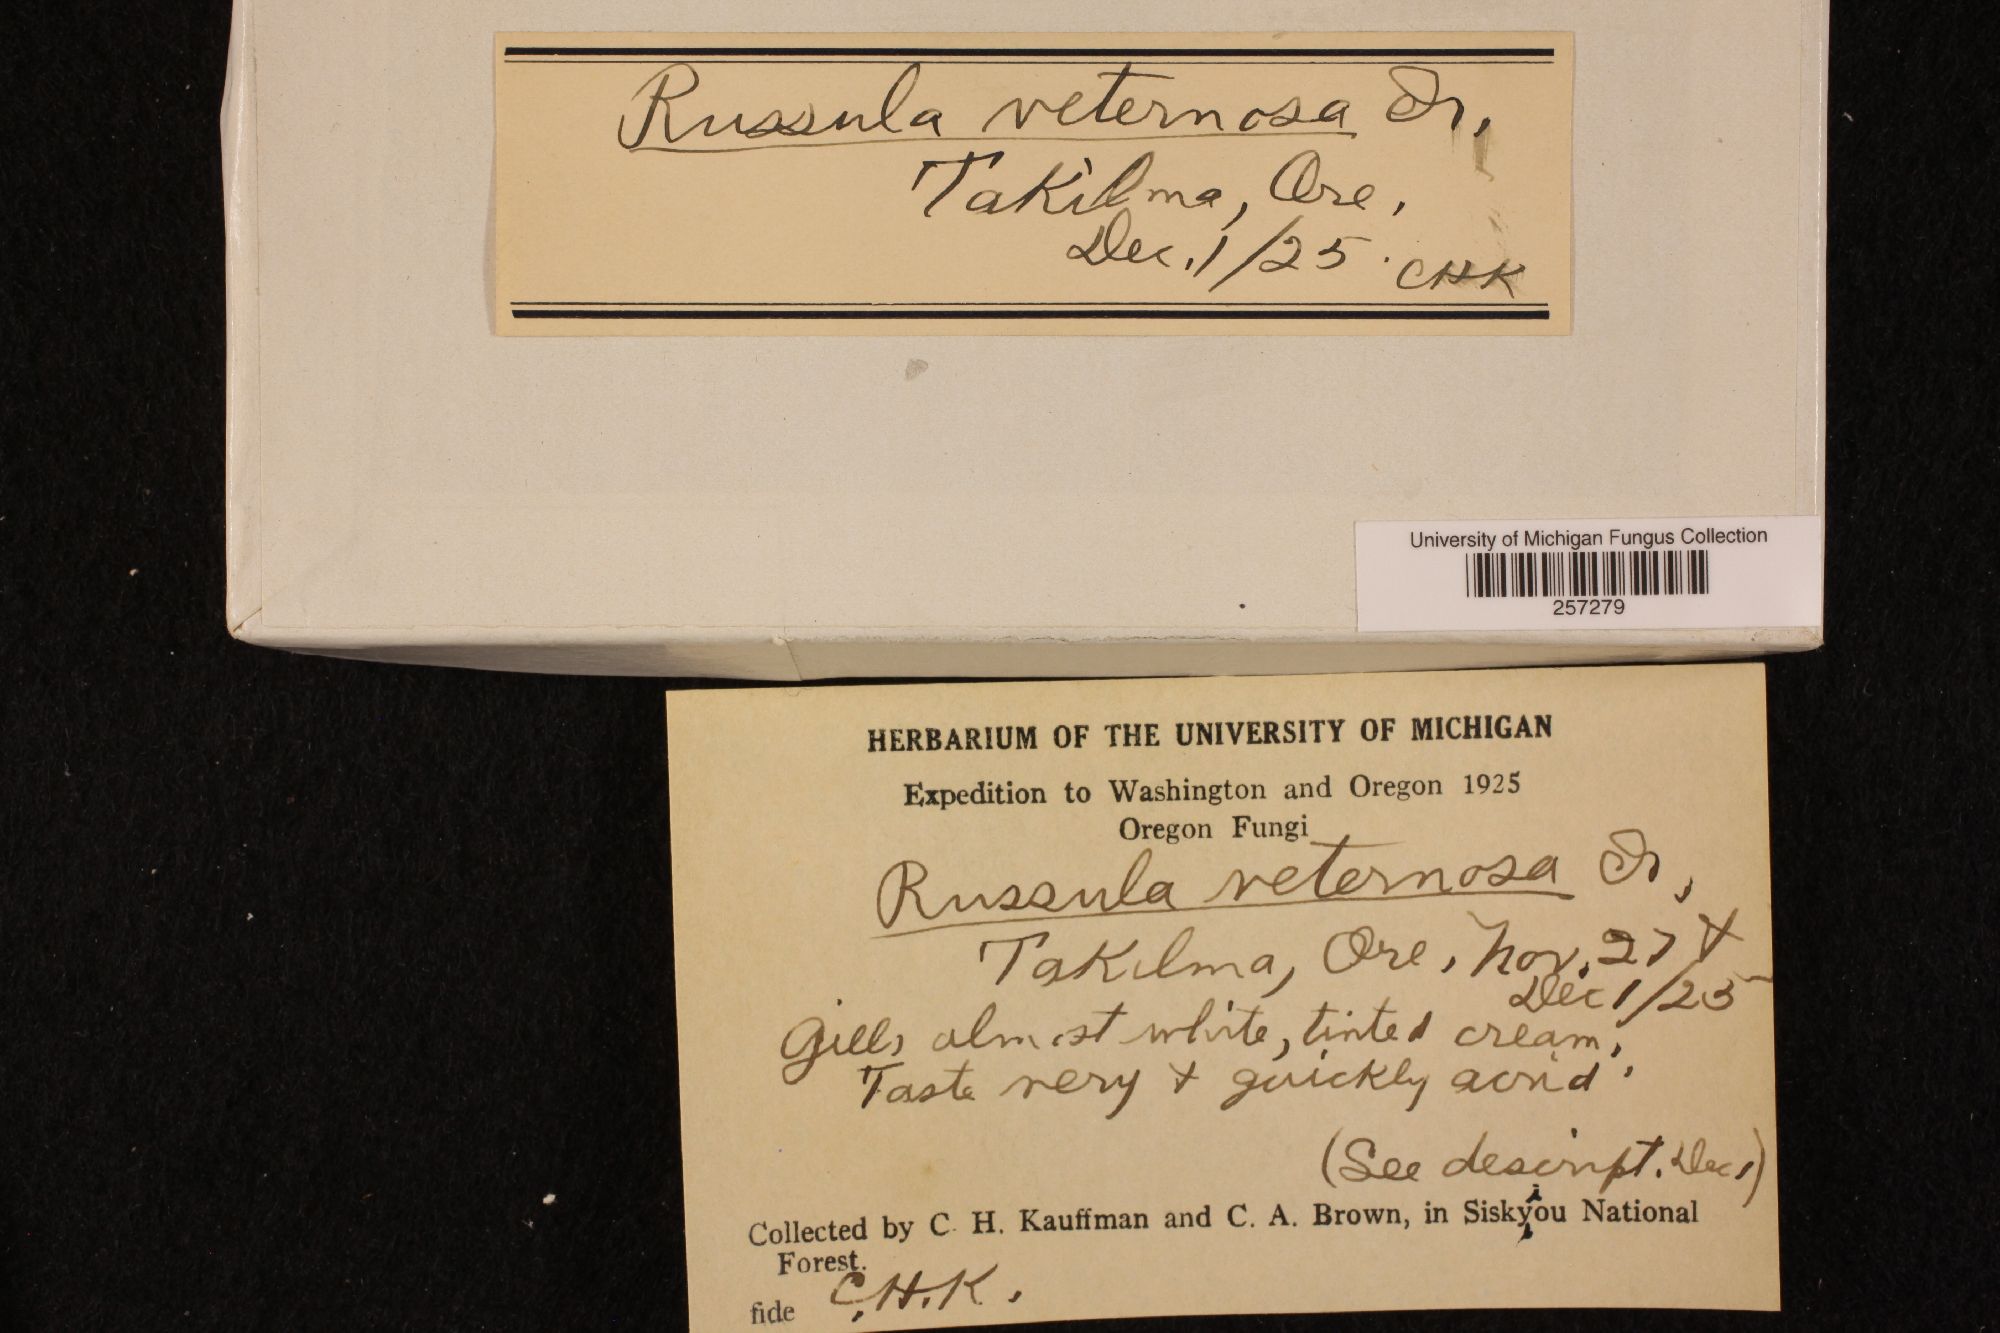 Russula veternosa Fr.
Takilma, Ore.
Dec. 1/25. CHK
University of Michigan Fungus Collection
257279
HERBARIUM OF THE UNIVERSITY OF MICHIGAN
Expedition to Washington and Oregon 1925
Oregon Fungi
Russula veternosa Fr.
Takilma, Ore, Nov. 27 +
Dec 1/25
Gills almost white, tinted cream,
Taste very + quickly acrid.
(See descript. Dec 1)
Collected by C. H. Kauffman and C. A. Brown, in Siskyiou National
Forest.
fide C.H.K.